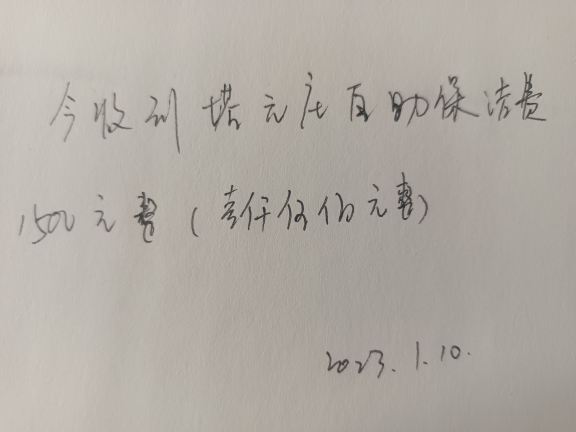 今收到塔元庄自助保洁费
1500元整(壹仟伍佰元整)
2023.1.10.